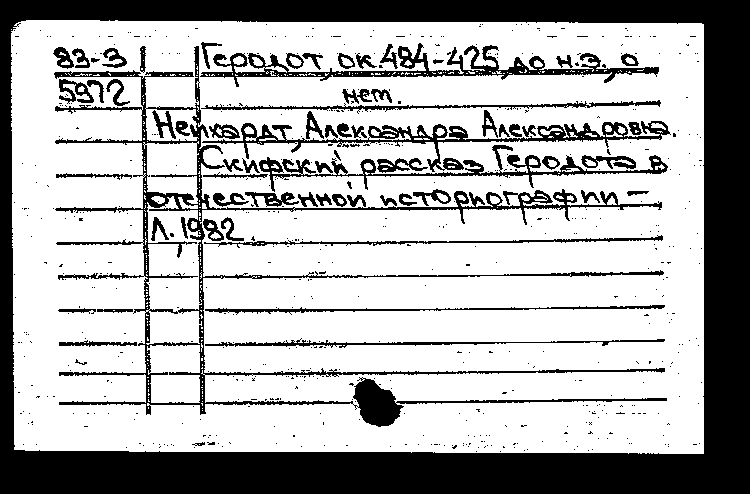 83-3 Геродот, ок. 484-425 до н.э., о
5972 нем.
Нейхардт, Александра Александровна.
Скифский рассказ Геродота в
отечественной историографии. -
Л., 1982.